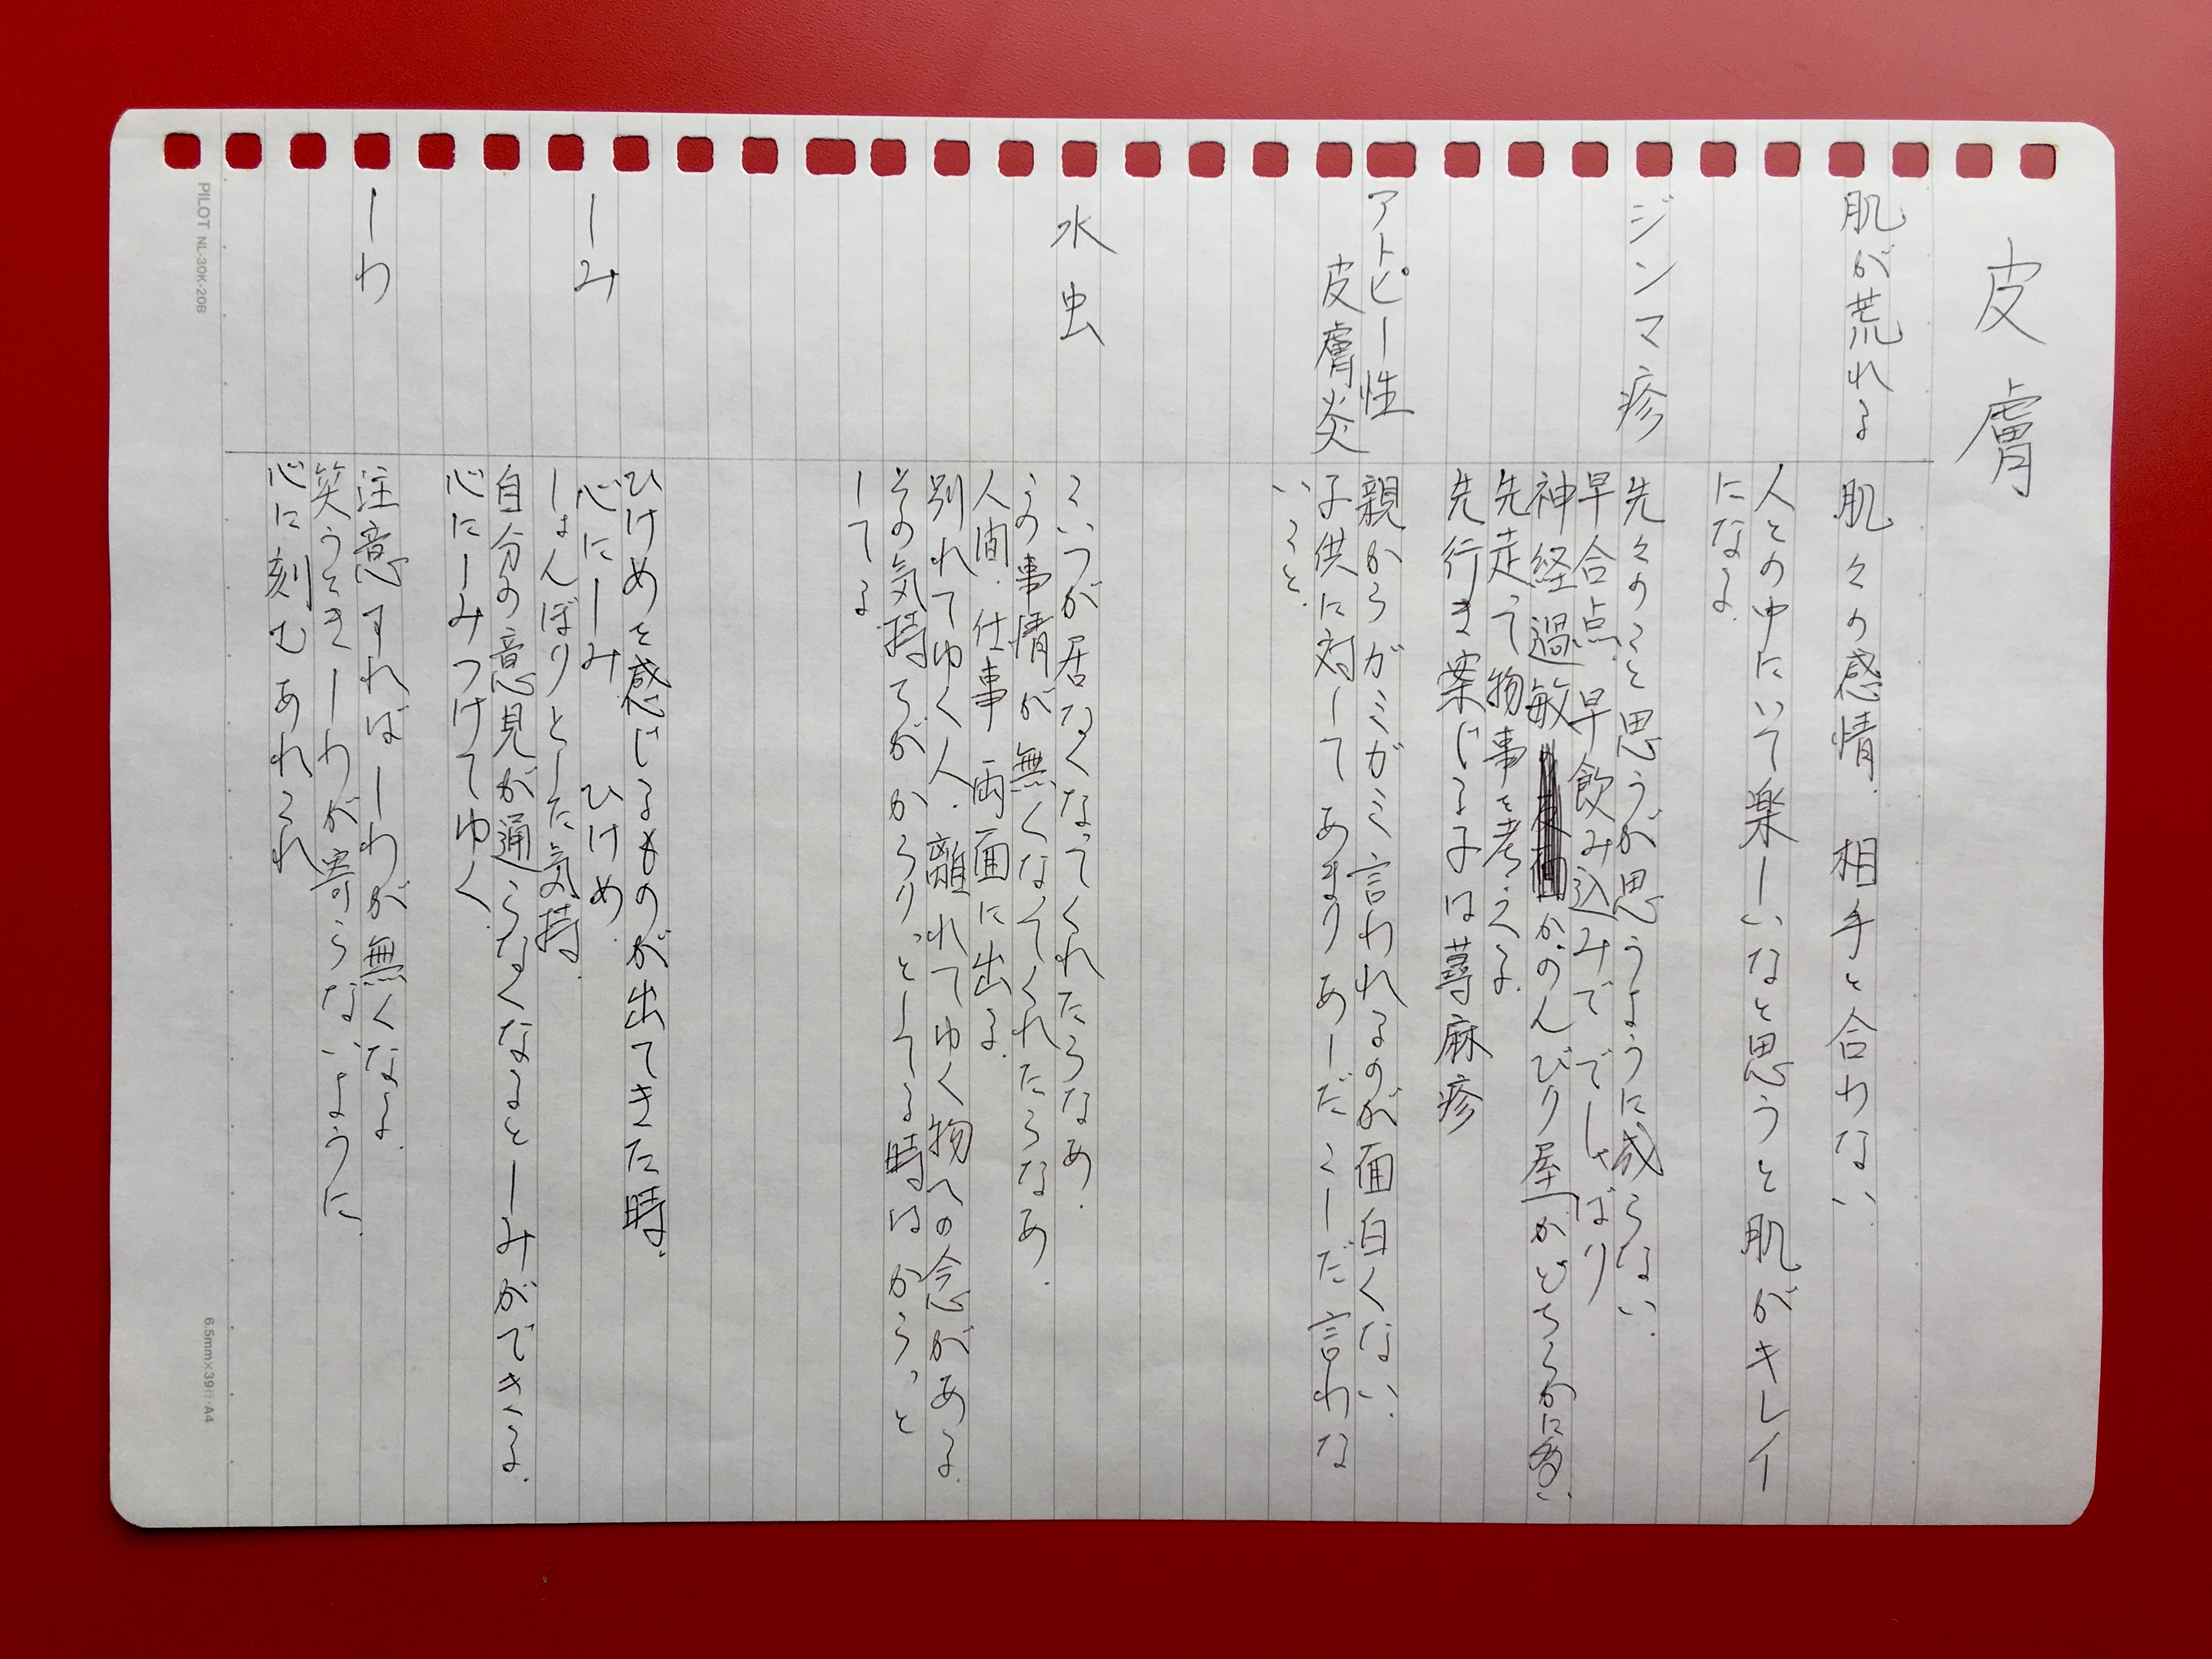 皮膚
肌が荒れる
肌々の感情. 相手と合わない.
人との中にいて楽しいなと思うと肌がキレイ
になる.
ジンマ疹
先々のこと思うが思うように成らない.
早合点. 早飲み込みで でしゃばり
神経過敏 かのんびり屋かどちらかに多い.
先走って物事を考える.
先行き案じる子は蕁麻疹
アトピー性
皮膚炎
親からガミガミ言われるのが面白くない.
子供に対してあまりあーだこーだ言わな
いこと.
水虫
こいつが居なくなってくれたらなあ.
この事情が無くなってくれたらなあ.
人間. 仕事 両面に出る.
別れてゆく人. 離れてゆく物への念がある.
その気持ちがからりっとしてる時はからっと
してる.
しみ
ひけめを感じるものが出てきた時.
心にしみ. ひけめ.
しょんぼりとした気持.
自分の意見が通らなくなるとしみができくる.
心にしみつけてゆく.
しわ
注意すればしわが無くなる.
笑うときしわが寄らないように.
心に刻むあれこれ
PILOT NL-30K-20B
6.5mm×39行・A4